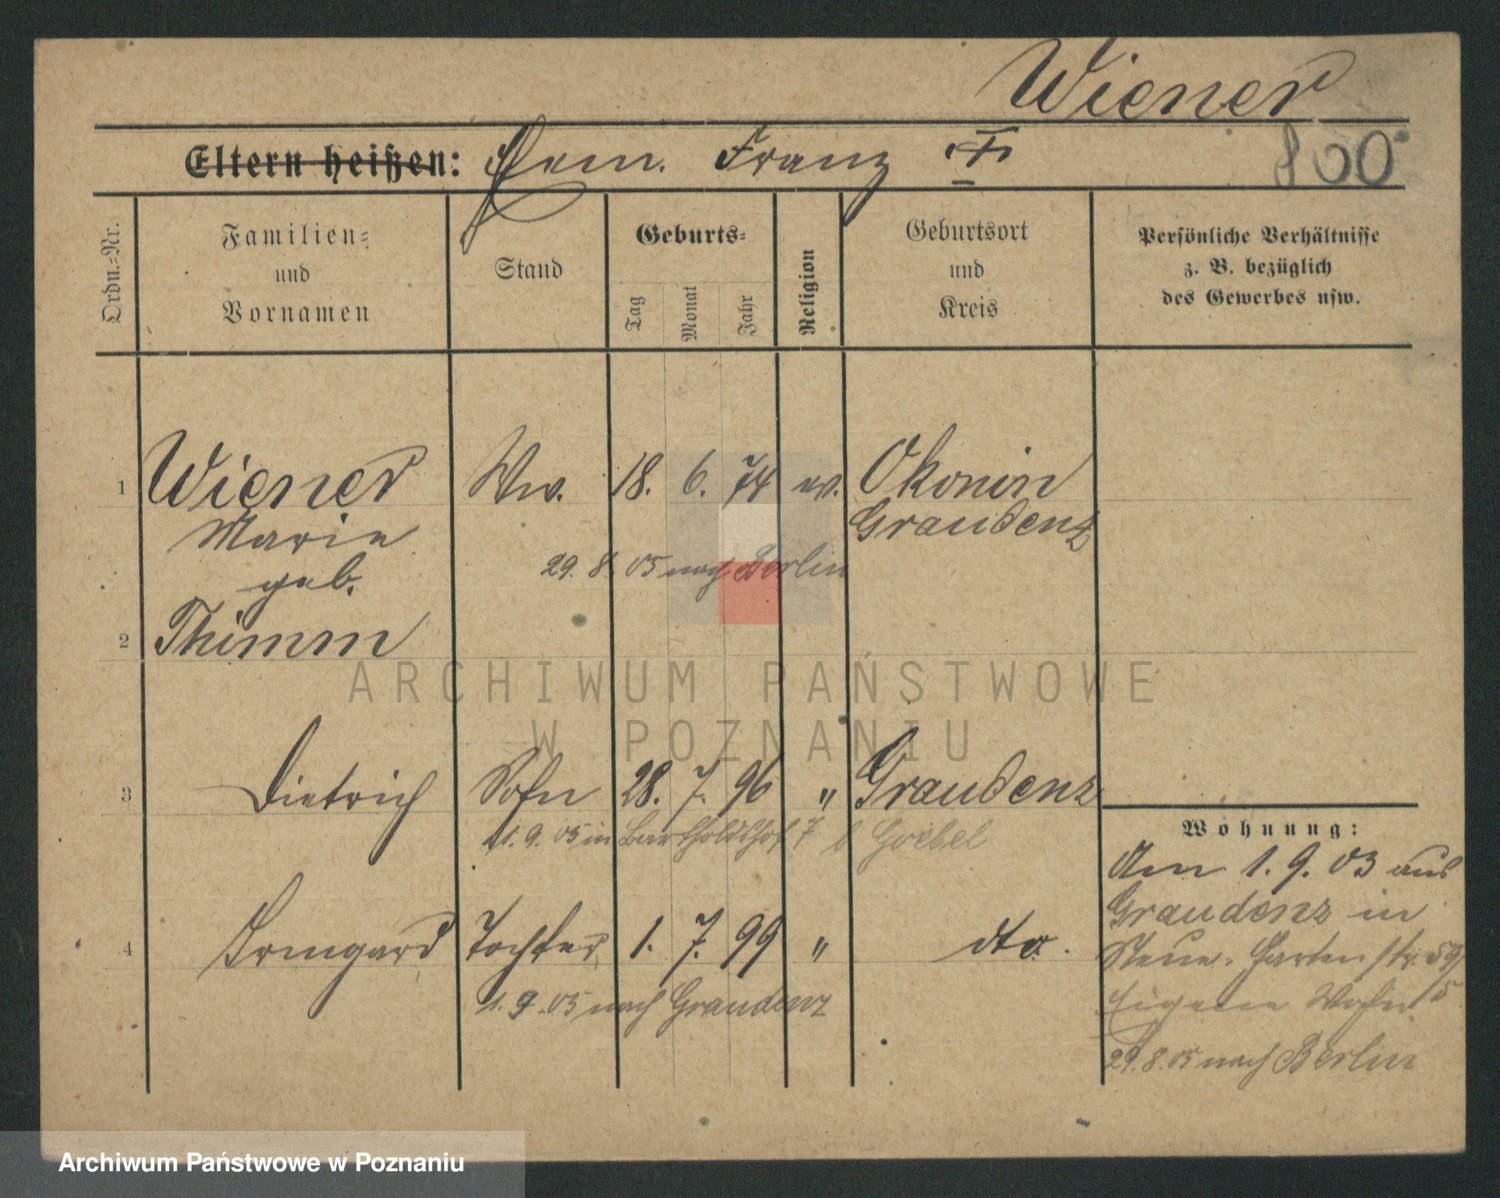 Wiener
Eltern heißen: Gem. Franz †
800
Ordn.-Nr.
Familien-
und
Vornamen
Stand
Geburts-
Tag
Monat
Jahr
Religion
Geburtsort
und
Kreis
Persönliche Verhältnisse
z. B. bezüglich
des Gewerbes usw.
1 Wiener Ww. 18. 6. 74 ev. Okonin
Marie Graudenz
geb. 29. 8. 05 nach Berlin
2 Thimm
ARCHIWUM PAŃSTWOWE
W POZNANIU
3 Dietrich Sohn 28. 7. 96 " Graudenz
1. 9. 05 in Bartholdshof 7 b Goebel
Wohnung:
Am 1. 9. 03 aus
Graudenz in
Neue- Gartenstr. 59/
Eigene Wohn. 5
29. 8. 05 nach Berlin
4 Irmgard Tochter 1. 7. 99 " dto.
1. 9. 05 nach Graudenz
Archiwum Państwowe w Poznaniu